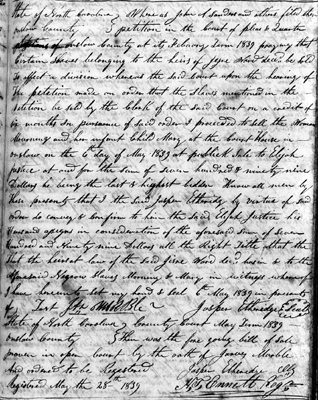 State of North Carolina } Whereas John A Sanders and others filed their
Onslow County } petition in the Court of pleas & Quarter
Sessions of Onslow County at its February Term 1839 praying that
Certain Slaves belonging to the heirs of Jesse Ward decd be sold
To effect a division whereas the said Court upon the hearing of
The petition made an order that the Slaves mentioned in the
petition be sold by the Clerk of the Said Court on a credit of
Six months In pursuance of Said order I proceeded to sell the Woman
Mourning and her infant Child Mary at the Court House in
onslow on the 6th day of May 1839 at publick Sale to Elijah
Justice at and for the sum of seven hundred & ninety nine
Dollars he being the last & highest bidder Know all men by
these presents that I the Said Jasper Etheridge by virtue of Said
order do convey & Confirm to him the Said Elijah Justice his
and assigns in consideration of the aforesaid sum of Seven
Hundred and Ninety nine Dollars all the Right Title
that the heirs at law of the Said Jesse Ward decd has in & to the
aforesaid Negroes Slaves Mourning & Mary in witness whereof
I have hereunto Set my hand & Seal 6th May 1839 in presents
Test Jasper Etheridge Seal
State of North Carolina } County Court May Term 1839
Onslow County } Then was the fore going bill of Sale
proven in open Court by the oath of Marble
And ordered to be Registered Jasper Etheridge Clk
Registered May the 28th 1839